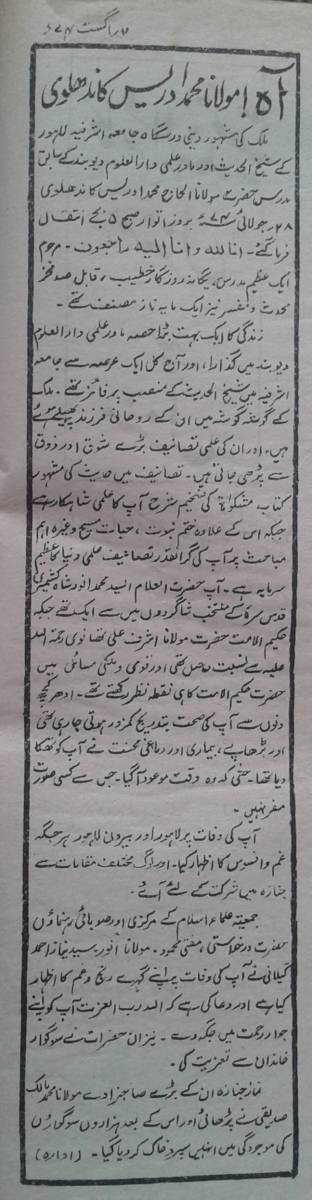 ۲ راگست ۷۴ء
آہ! مولانا محمد ادریس کاندھلوی
ملک کی مشہور دینی درسگاہ جامعہ اشرفیہ لاہور
کے شیخ الحدیث اور مادر علمی دارالعلوم دیوبند کے سابق
مدرس حضرت مولانا الحاج محمد ادریس کاندھلوی
۲۸ر جولائی ۷۴ء بروز اتوار صبح ۵ بجے انتقال
فرماگئے۔ انا للہ وانا الیہ راجعون۔ مرحوم
ایک عظیم مدرس، یگانہ روزگار خطیب، قابل صد فخر
محدث و مفسر نیز ایک مایہ ناز مصنف تھے۔
زندگی کا ایک بہت بڑا حصہ مادر علمی دارالعلوم
دیوبند میں گذارا، اور آج کل ایک عرصہ سے جامعہ
اشرفیہ میں شیخ الحدیث کے منصب پر فائز تھے۔ ملک
کے گوشہ گوشہ میں ان کے روحانی فرزند پھیلے ہوئے
ہیں، اور ان کی علمی تصانیف بڑے شوق اور ذوق
سے پڑھی جاتی ہیں۔ تصانیف میں حدیث کی مشہور
کتاب مشکوٰۃ کی ضخیم شرح آپ کا علمی شاہکار ہے
جبکہ اس کے علاوہ ختم نبوت، حیات مسیح وغیرہ اہم
مباحث پر آپ کی گرانقدر تصانیف علمی دنیا کا عظیم
سرمایہ ہے۔ آپ حضرت العلام السید محمد انور شاہ کشمیری
قدس سرہٗ کے منتخب شاگردوں میں سے ایک تھے جبکہ
حکیم الامت حضرت مولانا اشرف علی تھانوی رحمۃ اللہ
علیہ سے نسبت حاصل تھی اور قومی و ملکی مسائل میں
حضرت حکیم الامت کا ہی نقطہ نظر رکھتے تھے۔ ادھر کچھ
دنوں سے آپ کی صحت بتدریج کمزور ہوتی جارہی تھی
اور بڑھاپے، بیماری اور دماغی محنت نے آپ کو تھکا
دیا تھا۔ حتیٰ کہ وہ وقت موعود آگیا۔ جس سے کسی صورت
مفر نہیں۔
آپ کی وفات پر لاہور اور بیرون لاہور ہر جگہ
غم و افسوس کا اظہار کیا گیا۔ اور لوگ مختلف مقامات سے
جنازہ میں شرکت کے لئے آئے۔
جمعیۃ علماء اسلام کے مرکزی اور صوبائی رہنماؤں
حضرت درخواستی، مفتی محمود۔ مولانا انور، سید نیاز احمد
گیلانی نے آپ کی وفات پر اپنے گہرے رنج و غم کا اظہار
کیا ہے اور دعا کی ہے کہ اللہ رب العزت آپ کو اپنے
جوار رحمت میں جگہ دے۔ نیز ان حضرات نے سوگوار
خاندان سے تعزیت کی۔
نماز جنازہ ان کے بڑے صاحبزادے مولانا محمد مالک
صدیقی نے پڑھائی اور اس کے بعد ہزاروں سوگواروں
کی موجودگی میں انہیں سپرد خاک کر دیا گیا۔ (ادارہ)